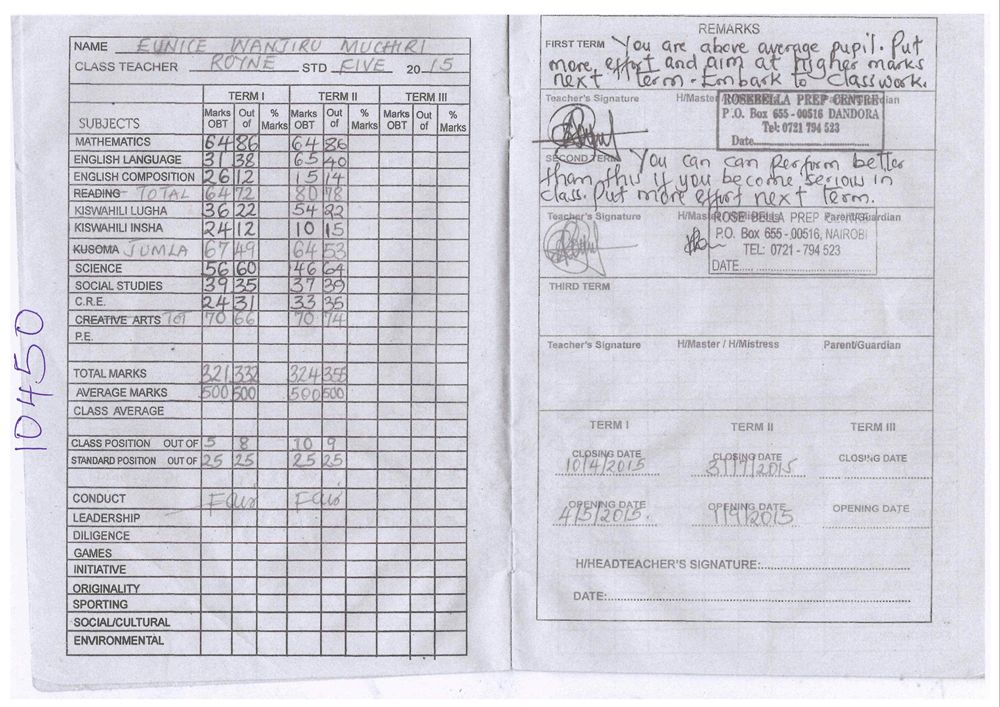 10450
NAME EUNICE WANJIRU MUCHIRI
CLASS TEACHER ROYNE STD FIVE 2015
TERM I TERM II TERM III
SUBJECTS Marks OBT Out of % Marks Marks OBT Out of % Marks Marks OBT Out of % Marks
MATHEMATICS 64 86 64 86
ENGLISH LANGUAGE 31 38 65 40
ENGLISH COMPOSITION 26 12 15 14
READING TOTAL 64 72 80 78
KISWAHILI LUGHA 36 22 54 22
KISWAHILI INSHA 24 12 10 15
KUSOMA JUMLA 67 49 64 53
SCIENCE 56 60 46 64
SOCIAL STUDIES 39 35 37 39
C.R.E. 24 31 33 35
CREATIVE ARTS TOT 70 66 70 74
P.E.
TOTAL MARKS 321 332 324 355
AVERAGE MARKS 500 500 500 500
CLASS AVERAGE
CLASS POSITION OUT OF 5 8 10 9
STANDARD POSITION OUT OF 25 25 25 25
CONDUCT Fair Fair
LEADERSHIP
DILIGENCE
GAMES
INITIATIVE
ORIGINALITY
SPORTING
SOCIAL/CULTURAL
ENVIRONMENTAL
REMARKS
FIRST TERM You are above average pupil. Put
more effort and aim at higher marks
next term. Embark to classwork.
Teacher's Signature H/Master
ROSEBELLA PREP CENTRE
P.O. Box 655 - 00516 DANDORA
Tel: 0721 794 523
Date
SECOND TERM You can can perform better
than this if you become serious in
class. Put more effort next term.
Teacher's Signature Parent/Guardian
ROSE BELLA PREP
P.O. Box 655 - 00516, NAIROBI
TEL: 0721 - 794 523
DATE
THIRD TERM
Teacher's Signature H/Master / H/Mistress Parent/Guardian
TERM I TERM II TERM III
CLOSING DATE CLOSING DATE CLOSING DATE
10/4/2015 31/7/2015
OPENING DATE OPENING DATE OPENING DATE
4/5/2015. 1/9/2015
H/HEADTEACHER'S SIGNATURE:
DATE: